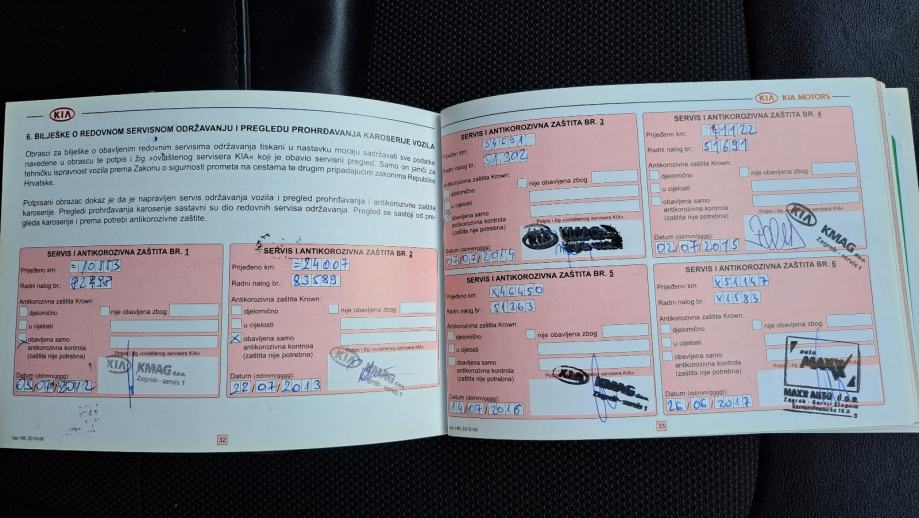 KIA
6. BILJEŠKE O REDOVNOM SERVISNOM ODRŽAVANJU I PREGLEDU PROHRĐAVANJA KAROSERIJE VOZILA
Obrasci za bilješke o obavljenim redovnim servisima održavanja tiskani u nastavku moraju sadržavati sve podatke
navedene u obrascu te potpis i žig »ovlaštenog servisera KIA« koji je obavio servisni pregled. Samo on jamči za
tehničku ispravnost vozila prema Zakonu o sigurnosti prometa na cestama te drugim pripadajućim zakonima Republike
Hrvatske.
Potpisani obrazac dokaz je da je napravljen servis održavanja vozila i pregled prohrđavanja / antikorozivne zaštite
karoserije. Pregledi prohrđavanja karoserije sastavni su dio redovnih servisa održavanja. Pregled se sastoji od pre-
gleda karoserije i prema potrebi antikorozivne zaštite.
SERVIS I ANTIKOROZIVNA ZAŠTITA BR. 1
Prijeđeno km: =10553
Radni nalog br.:
Antikorozivna zaštita Krown:
djelomično
nije obavljena zbog
u cijelosti
obavljena samo
antikorozivna kontrola
(zaštita nije potrebna)
Potpis i žig »ovlaštenog servisera KIA«
KIA KMAG d.o.o.
Zagreb - servis 1
Datum (dd/mm/gggg):
SERVIS I ANTIKOROZIVNA ZAŠTITA BR. 2
Prijeđeno km: =24007
Radni nalog br.: 83589
Antikorozivna zaštita Krown:
djelomično
nije obavljena zbog
u cijelosti
X obavljena samo
antikorozivna kontrola
(zaštita nije potrebna)
Potpis i žig »ovlaštenog servisera KIA«
KMAG d.o.o.
Zagreb - servis 1
Datum (dd/mm/gggg):
22/07/2013
Ver HR 2010-06
32
KIA KIA MOTORS
SERVIS I ANTIKOROZIVNA ZAŠTITA BR. 3
Prijeđeno km: 34691
Radni nalog br.: 51302
Antikorozivna zaštita Krown:
djelomično
nije obavljena zbog
u cijelosti
obavljena samo
antikorozivna kontrola
(zaštita nije potrebna)
Potpis i žig »ovlaštenog servisera KIA«
Datum (dd/mm/gggg):
SERVIS I ANTIKOROZIVNA ZAŠTITA BR. 4
Prijeđeno km: 41122
Radni nalog br.: 51691
Antikorozivna zaštita Krown:
djelomično
nije obavljena zbog
u cijelosti
obavljena samo
antikorozivna kontrola
(zaštita nije potrebna)
KIA KMAG d.o.o.
Zagreb - servis 1
Datum (dd/mm/gggg):
02/07/2015
SERVIS I ANTIKOROZIVNA ZAŠTITA BR. 5
Prijeđeno km: x46450
Radni nalog br.: 51363
Antikorozivna zaštita Krown:
djelomično
nije obavljena zbog
u cijelosti
obavljena samo
antikorozivna kontrola
(zaštita nije potrebna)
Potpis i žig »ovlaštenog servisera KIA«
KIA KMAG d.o.o.
Zagreb - servis 1
Datum (dd/mm/gggg):
14/07/2016
SERVIS I ANTIKOROZIVNA ZAŠTITA BR. 6
Prijeđeno km: x51147
Radni nalog br.: x1583
Antikorozivna zaštita Krown:
djelomično
nije obavljena zbog
u cijelosti
obavljena samo
antikorozivna kontrola
(zaštita nije potrebna)
auto
MAXX
MAXX AUTO d.o.o.
Datum (dd/mm/gggg):
26/06/2017
Ver HR 2010-06
33